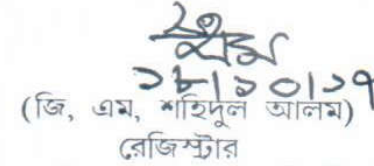 ১৮|১০|১৭
(জি, এম, শহিদুল আলম)
রেজিস্ট্রার